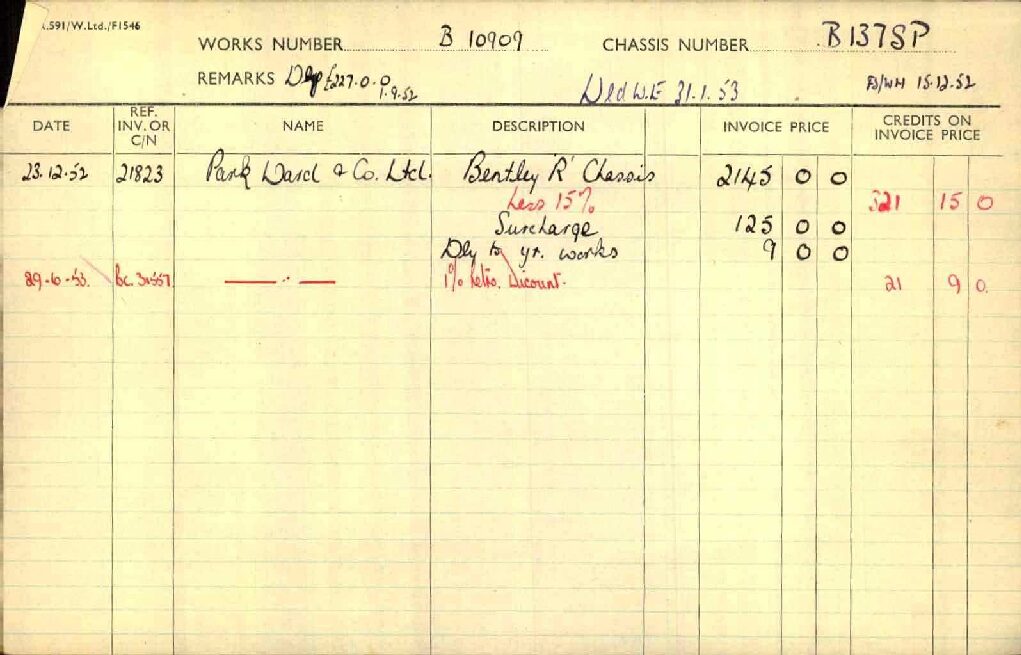 .591/W.Ltd./F1546
WORKS NUMBER B 10909 CHASSIS NUMBER B137SP
REMARKS Dep £227.0.0 1.9.52 Dld W.E 31.1.53 15.12.52
DATE REF. INV. OR C/N NAME DESCRIPTION INVOICE PRICE CREDITS ON INVOICE PRICE
23.12.52 21823 Park Ward & Co. Ltd. Bentley 'R' Chassis 2145 0 0
Less 15% 321 15 0
Surcharge 125 0 0
Dly to yr. works 9 0 0
29-6-53. 1% Dicount. 21 9 0.